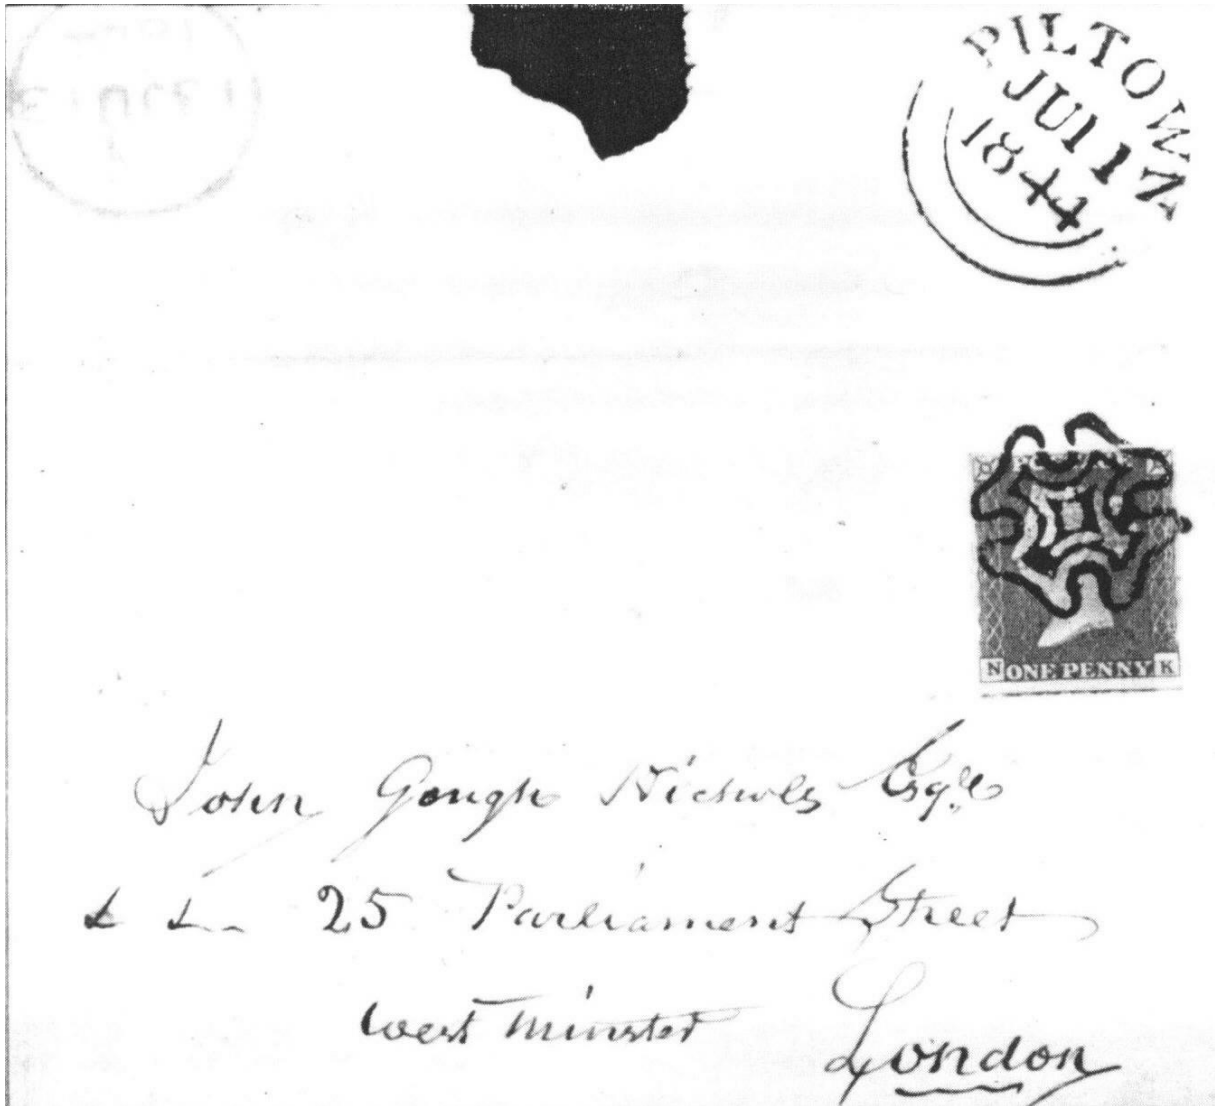 PILTOWN
JU 11
1844
N ONE PENNY K
John Gough Nichols Esqre
25 Parliament Street
West Minster London